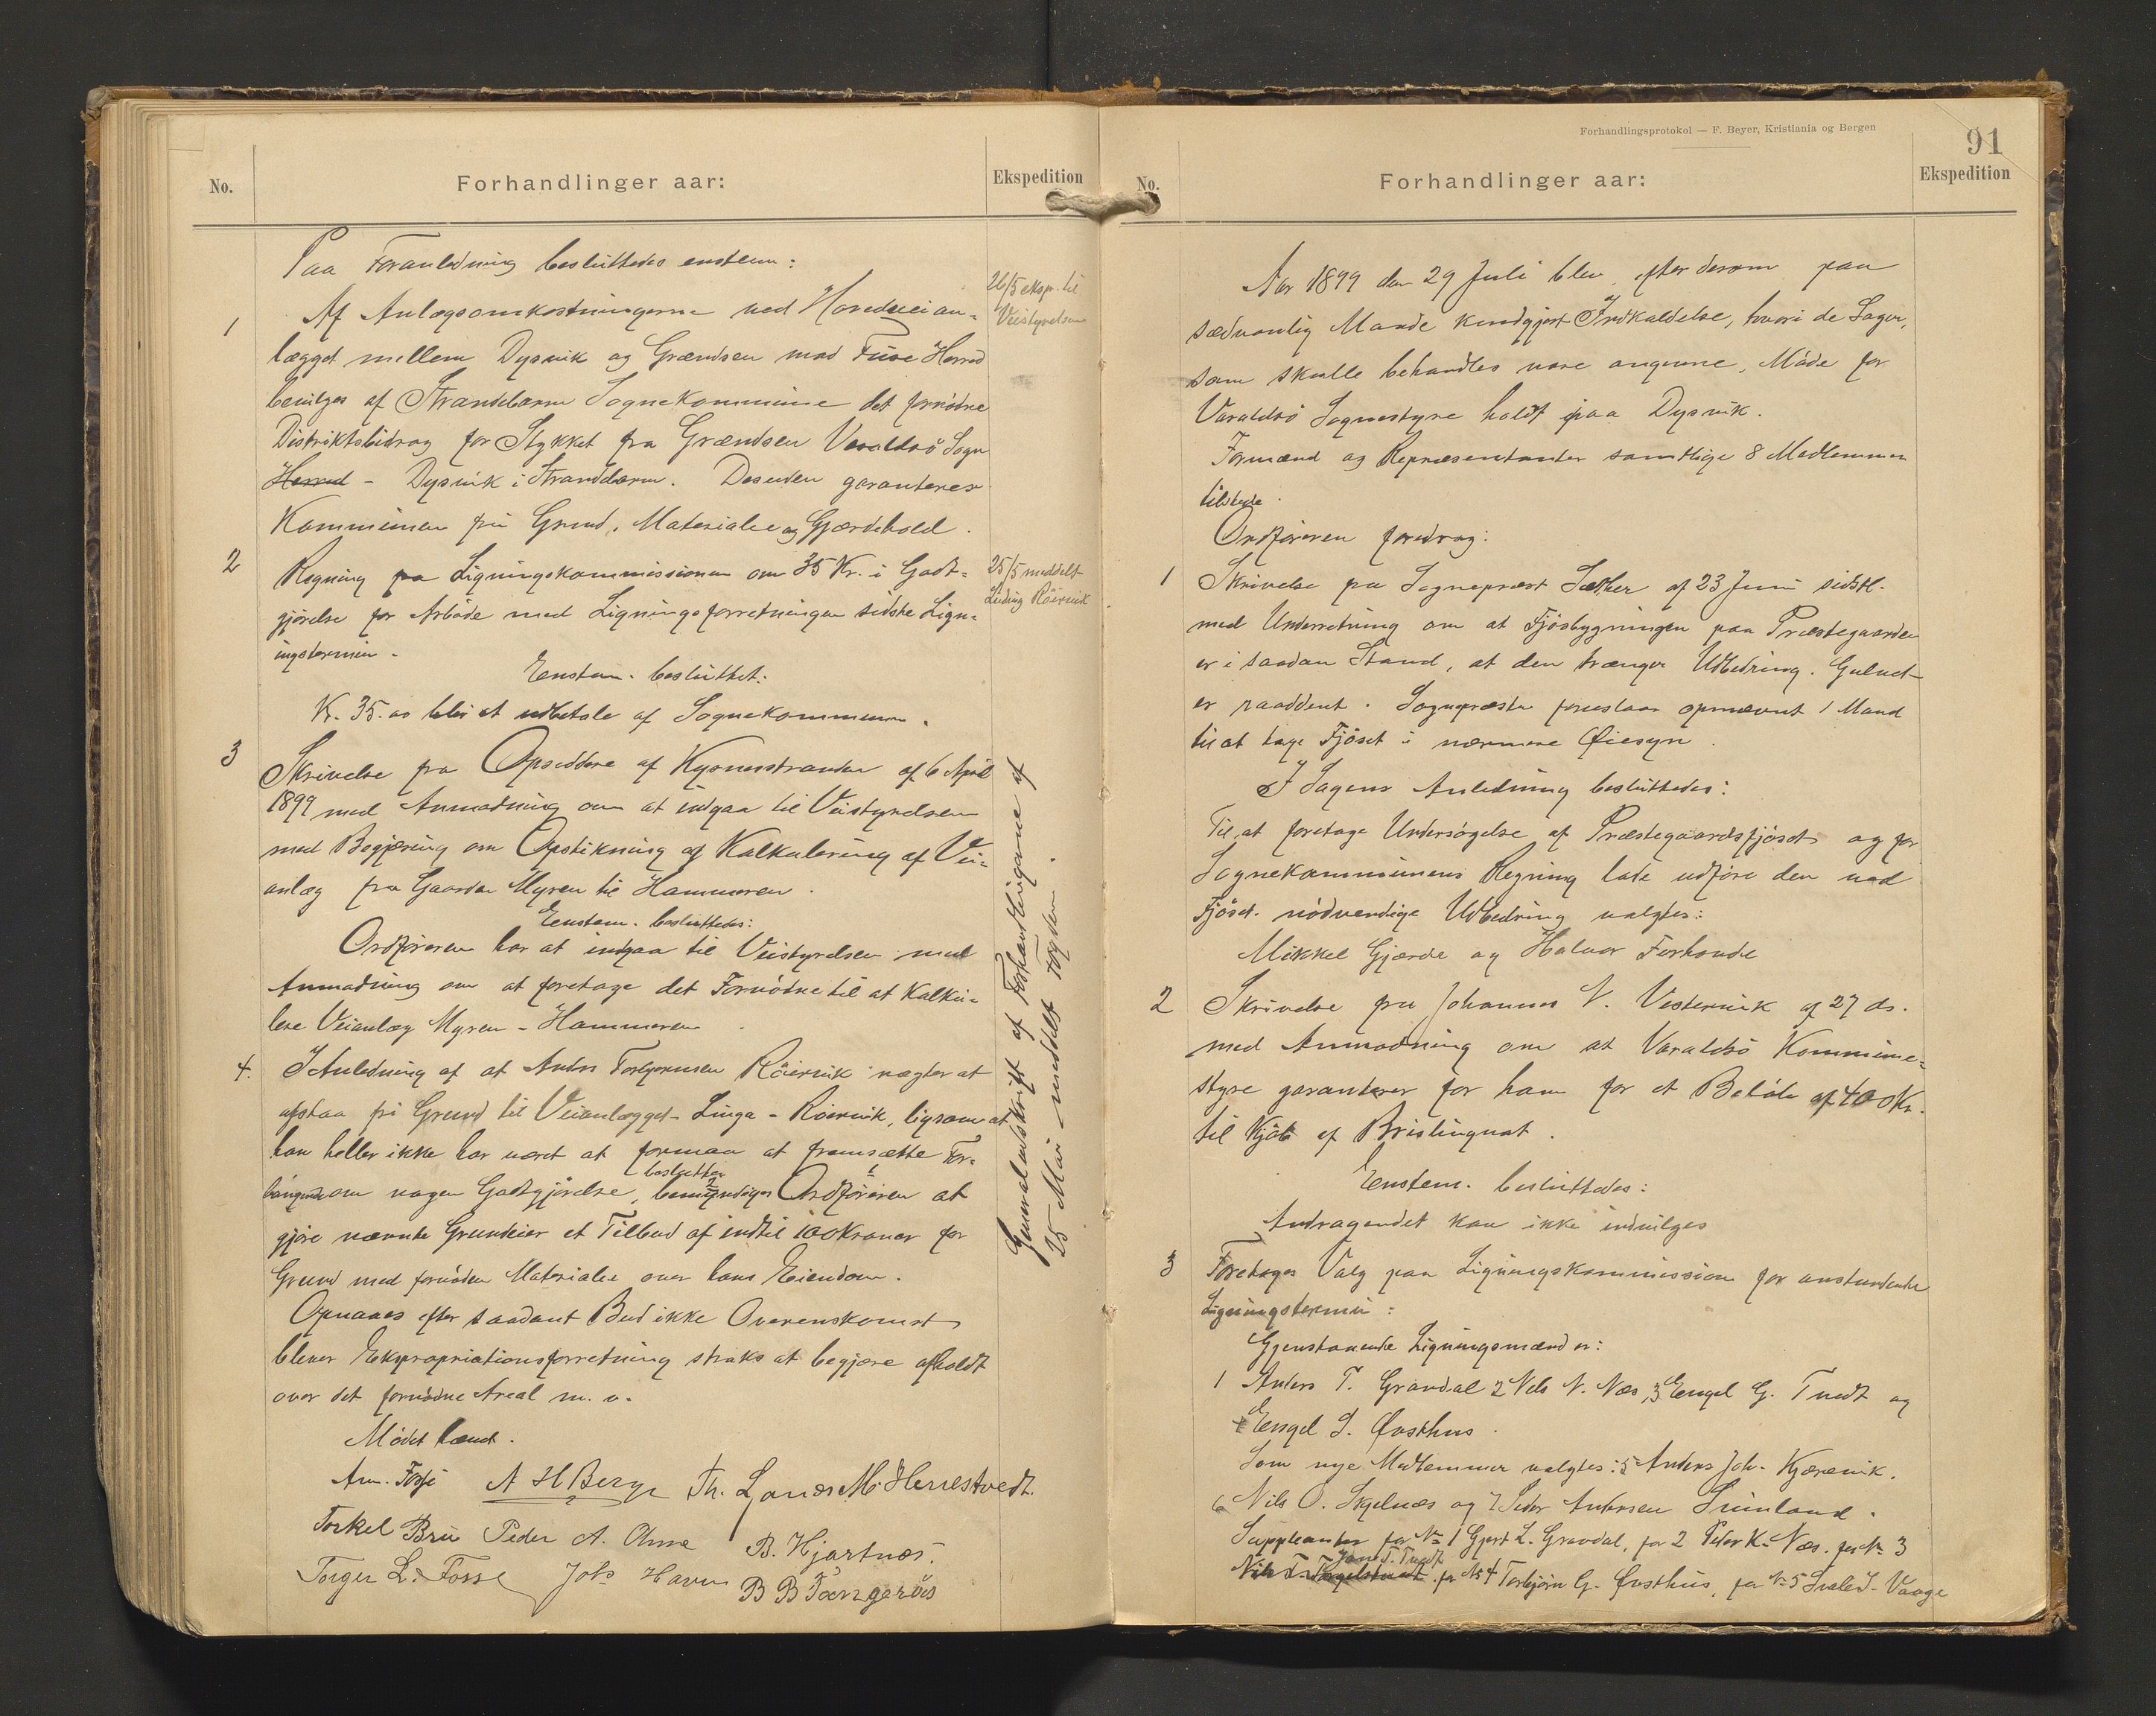 No.
Forhandlinger aar:
Ekspedition
Paa Foranledning besluttedes enstem:
1 Af Anlægsomkostningerne ved Hovedveian-
lægget mellem Dysvik og Grændsen mod Fuse Herred
bevilges af Strandebarm Sognekommune det fornødne
Distriktsbidrag for Stykket fra Grændsen Varaldsö Sogn
Herred - Dysvik i Strandebarm. Desuden garanteres
Kommunen fri Grund, Materialer og Gjærdehold.
26/5 eksp. til
Veistyrelsen
2 Regning fra Ligningskommissionen om 35 Kr. i Godt-
gjörelse for Arbeide med Ligningsforretningen sidste Lign-
ingstermin.
25/5 meddelt
Röiervik
Enstem. besluttet:
Kr. 35.00 blir at udbetale af Sognekommunen.
3 Skrivelse fra Opsiddere af Kysnesstranden af 6 April
1899 med Anmodning om at indgaa til Veistyrelsen
med Begjæring om Opstikning og Kalkulering af Vei-
anlæg fra Gaarden Myren til Hammeren.
Eenstem. besluttedes:
Ordföreren har at indgaa til Veistyrelsen med
Anmodning om at foretage det Fornödne til at Kalku-
lere Veianlæg Myren - Hammeren.
4. I Anledning af at Anders Torbjørnsen Röiervik nægter at
afstaa fri Grund til Veianlægget Linga - Röiervik, ligesom at
han heller ikke har været at formaa at fremsætte For-
langende om nogen Godtgjörelse, beslutter bemyndiges Ordföreren at
gjöre nævnte Grundeier et Tilbud af indtil 100 Kroner for
Grund med fornöden Materialer over hans Eiendom.
Opnaaes efter saadant Bud ikke Overenskomst
bliver Expropriationsforretning straks at begjære afholdt
over det fornödne Areal m. v.
Mödet hævet.
Am. Fosse A H Berge Th. Lönes M. Herrestvedt.
Torkel Bru Peder A. Oma B. Hjartnæs.
Torger L. Fosse Johs Havn B B Tangeraas
Generaludskrift af Forhandlingerne af
25 Mai meddelt Fogden.
Forhandlingsprotokol — F. Beyer, Kristiania og Bergen
91
No.
Forhandlinger aar:
Ekspedition
Aar 1899 den 29 Juli blev, efter derom paa
sædvanlig Maade kundgjort Indkaldelse, hvori de Sager,
som skulle behandles vare angivne, Möde for
Varaldsö Sognestyre holdt paa Dysvik.
Formænd og Repræsentanter samtlige 8 Medlemmer
tilstede.
Ordföreren foredrog:
1 Skrivelse fra Sognepræst Sæther af 23 Juni sidstl.
med Underretning om at Fjösbygningen paa Præstegaarden
er i saadan Stand, at den trænger Udbedring. Gulvet
er raaddent. Sognepræsten foreslaar opnævnt 1 Mand
til at tage Fjöset i nærmere Øiesyn.
I Sagens Anledning besluttedes:
Til at foretage Undersögelse af Præstegaardsfjöset og for
Sognekommunens Regning lade udföre den ved
Fjöset nödvendige Udbedring valgtes:
Mikkel Gjærde og Halvor Forhonde
2 Skrivelse fra Johannes N. Vestervik af 27 ds.
med Anmodning om at Varaldsö Kommune-
styre garanterer for ham for et Belöb af 400 Kr.
til Kjöb af Brislingnot.
Enstem. besluttedes:
Andragendet kan ikke indvilges
3 Foretages Valg paa Ligningskommission for anstundende
Ligningstermin:
Gjenstaaende Ligningsmænd er:
1 Anders T. Gravdal 2 Nels N. Næs, 3 Engel G. Tvedt og
4 Engel S. Øvsthus.
Som nye Medlemmer valgtes: 5 Anders Joh. Kjærevik.
6 Nils O. Skjelnæs og 7 Peder Andersen
Suppleanter for No 1 Gjert L. Gravdal, for 2 Peder K. Næs. for No 3
Jon T. Tvedt for No 4 Torbjörn G. Øvsthus, for No 5 Vaage